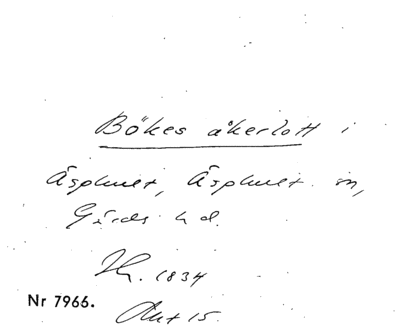 Bökes åkerlott i
Äsphult, Äsphult sn,
Gärds hd.
Hh. 1834
Nr 7966.
Akt 15.